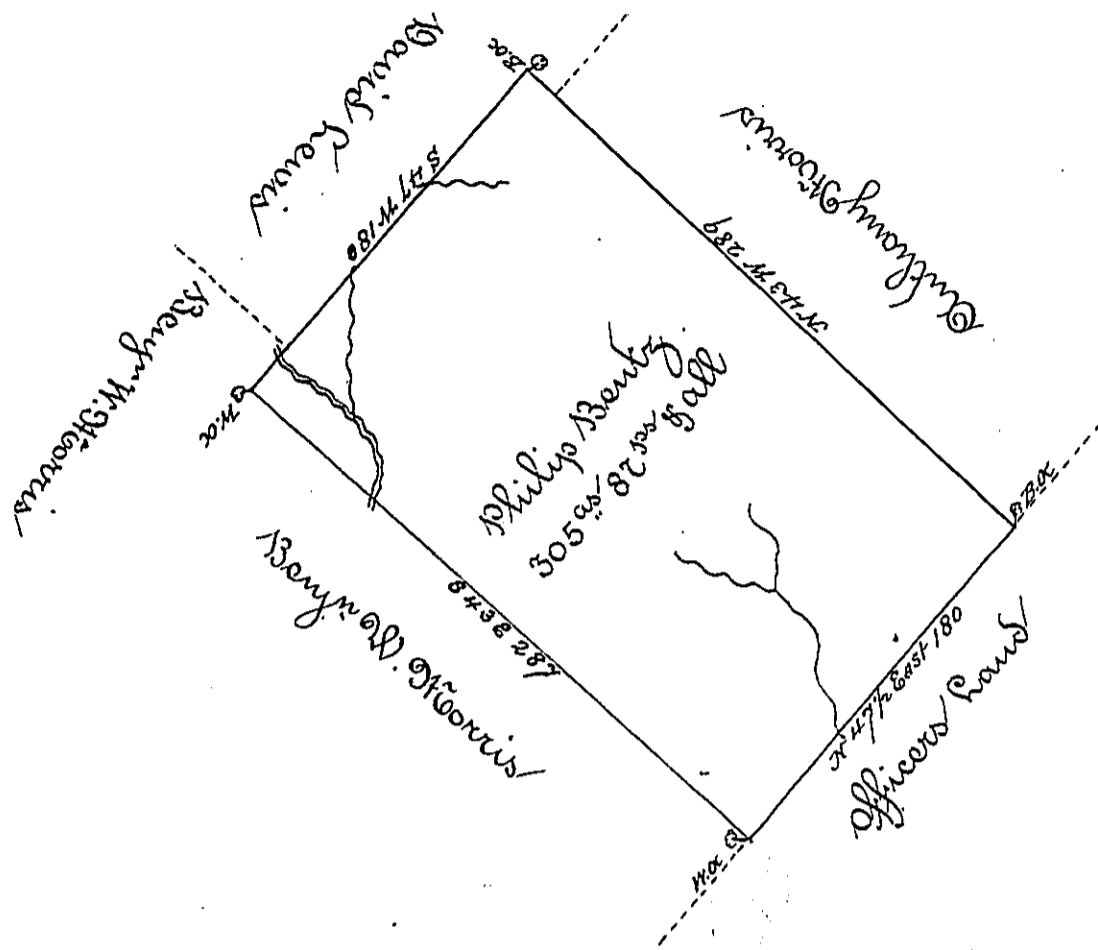 David Lewis
B.O
S 47 W 180
Anthony Morris
N 43 W 289
Benjn W. Morris
W.O
Philip Bentz
305 as " 87 ps & all
Benjn W. Morris
S 43 E 287
B.O
N 47 1/2 East 180
Officers Land
W.O